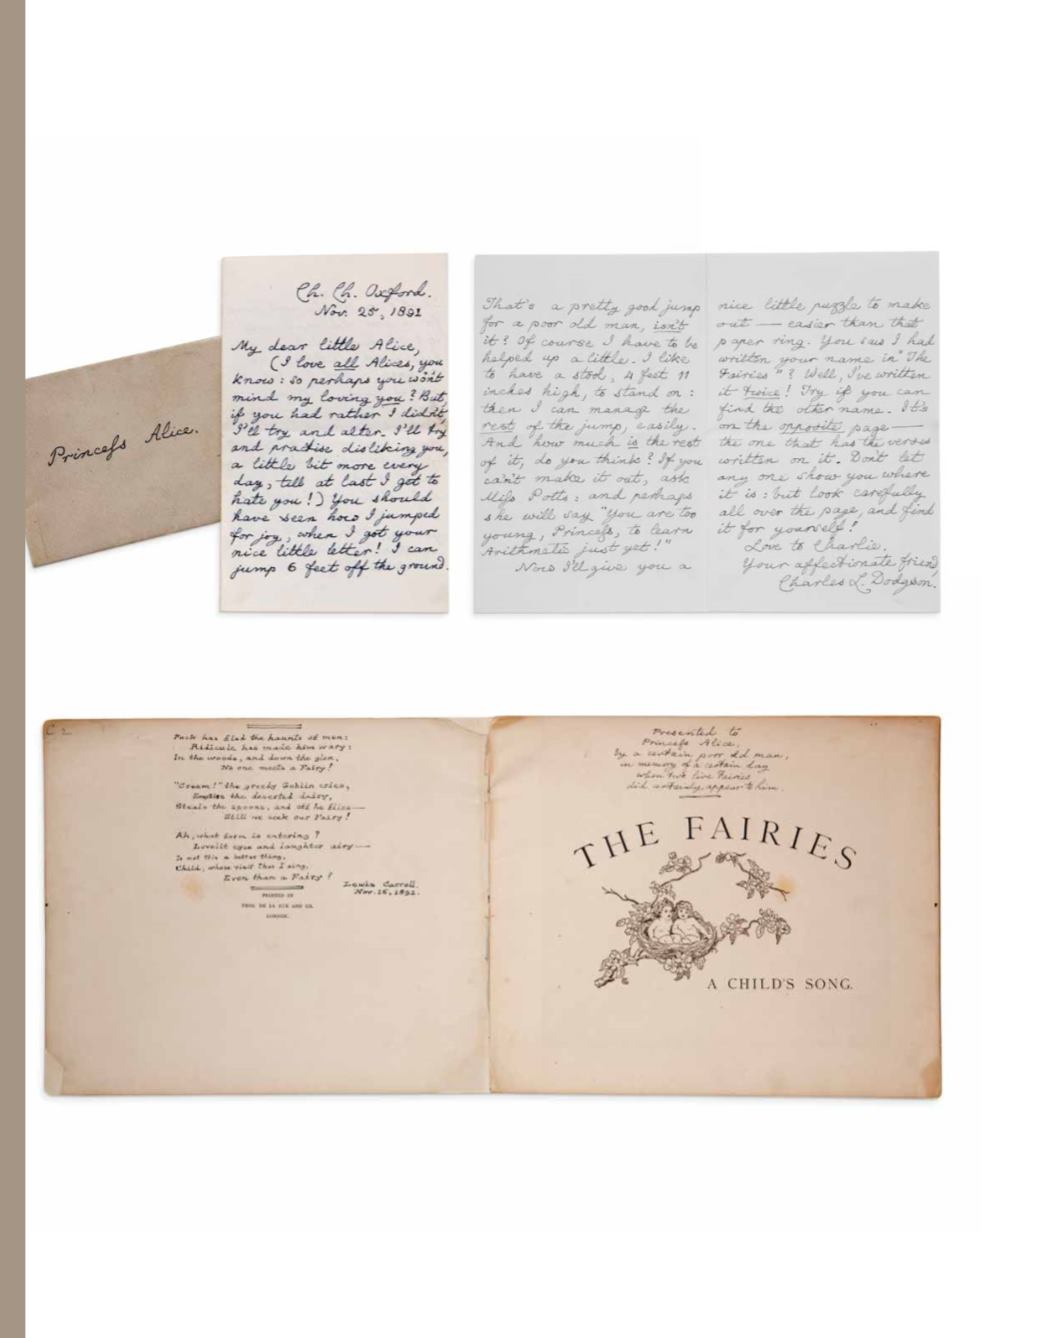 Princeſs Alice.
Ch. Ch. Oxford.
Nov. 25, 1891
My dear little Alice,
(I love all Alices, you
know: so perhaps you wo'n't
mind my loving you? But,
if you had rather I didn't,
I'll try and alter. I'll try
and practise disliking you,
a little bit more every
day, till at last I get to
hate you!) You should
have seen how I jumped
for joy, when I got your
nice little letter! I can
jump 6 feet off the ground.
That's a pretty good jump
for a poor old man, isn't
it? Of course I have to be
helped up a little. I like
to have a stool, 4 feet 11
inches high, to stand on:
then I can manage the
rest of the jump, easily.
And how much is the rest
of it, do you think? If you
ca'n't make it out, ask
Miſs Potts: and perhaps
she will say "You are too
young, Princeſs, to learn
Arithmetic just yet!"
Now I'll give you a
nice little puzzle to make
out — easier than that
paper ring. You saw I had
written your name in "The
Fairies"? Well, I've written
it twice! Try if you can
find the other name. It's
on the opposite page —
the one that has the verses
written on it. Don't let
any one show you where
it is: but look carefully
all over the page, and find
it for yourself!
Love to Charlie.
Your affectionate friend,
Charles L. Dodgson.
C 2
Puck has fled the haunts of men:
Ridicule has made him wary:
In the woods, and down the glen,
No one meets a Fairy!
"Cream!" the greedy Goblin cries,
Empties the deserted dairy,
Steals the spoons, and off he flies —
Still we seek our Fairy!
Ah, what form is entering?
Lovelit eyes and laughter airy —
Is not this a better thing,
Child, whose visit thus I sing,
Even than a Fairy?
Lewis Carroll.
Nov. 16, 1891.
PRINTED BY
THOS. DE LA RUE AND CO.
LONDON.
Presented to
Princeſs Alice,
by a certain poor old man,
in memory of a certain day
when two live Fairies
did certainly appear to him.
THE FAIRIES
A CHILD'S SONG.